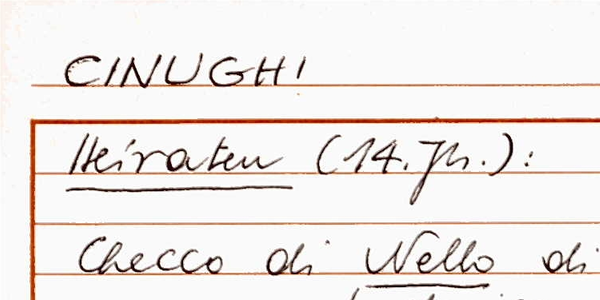 CINUGHI
Heiraten (14. Jh.):
Checco di Nello di